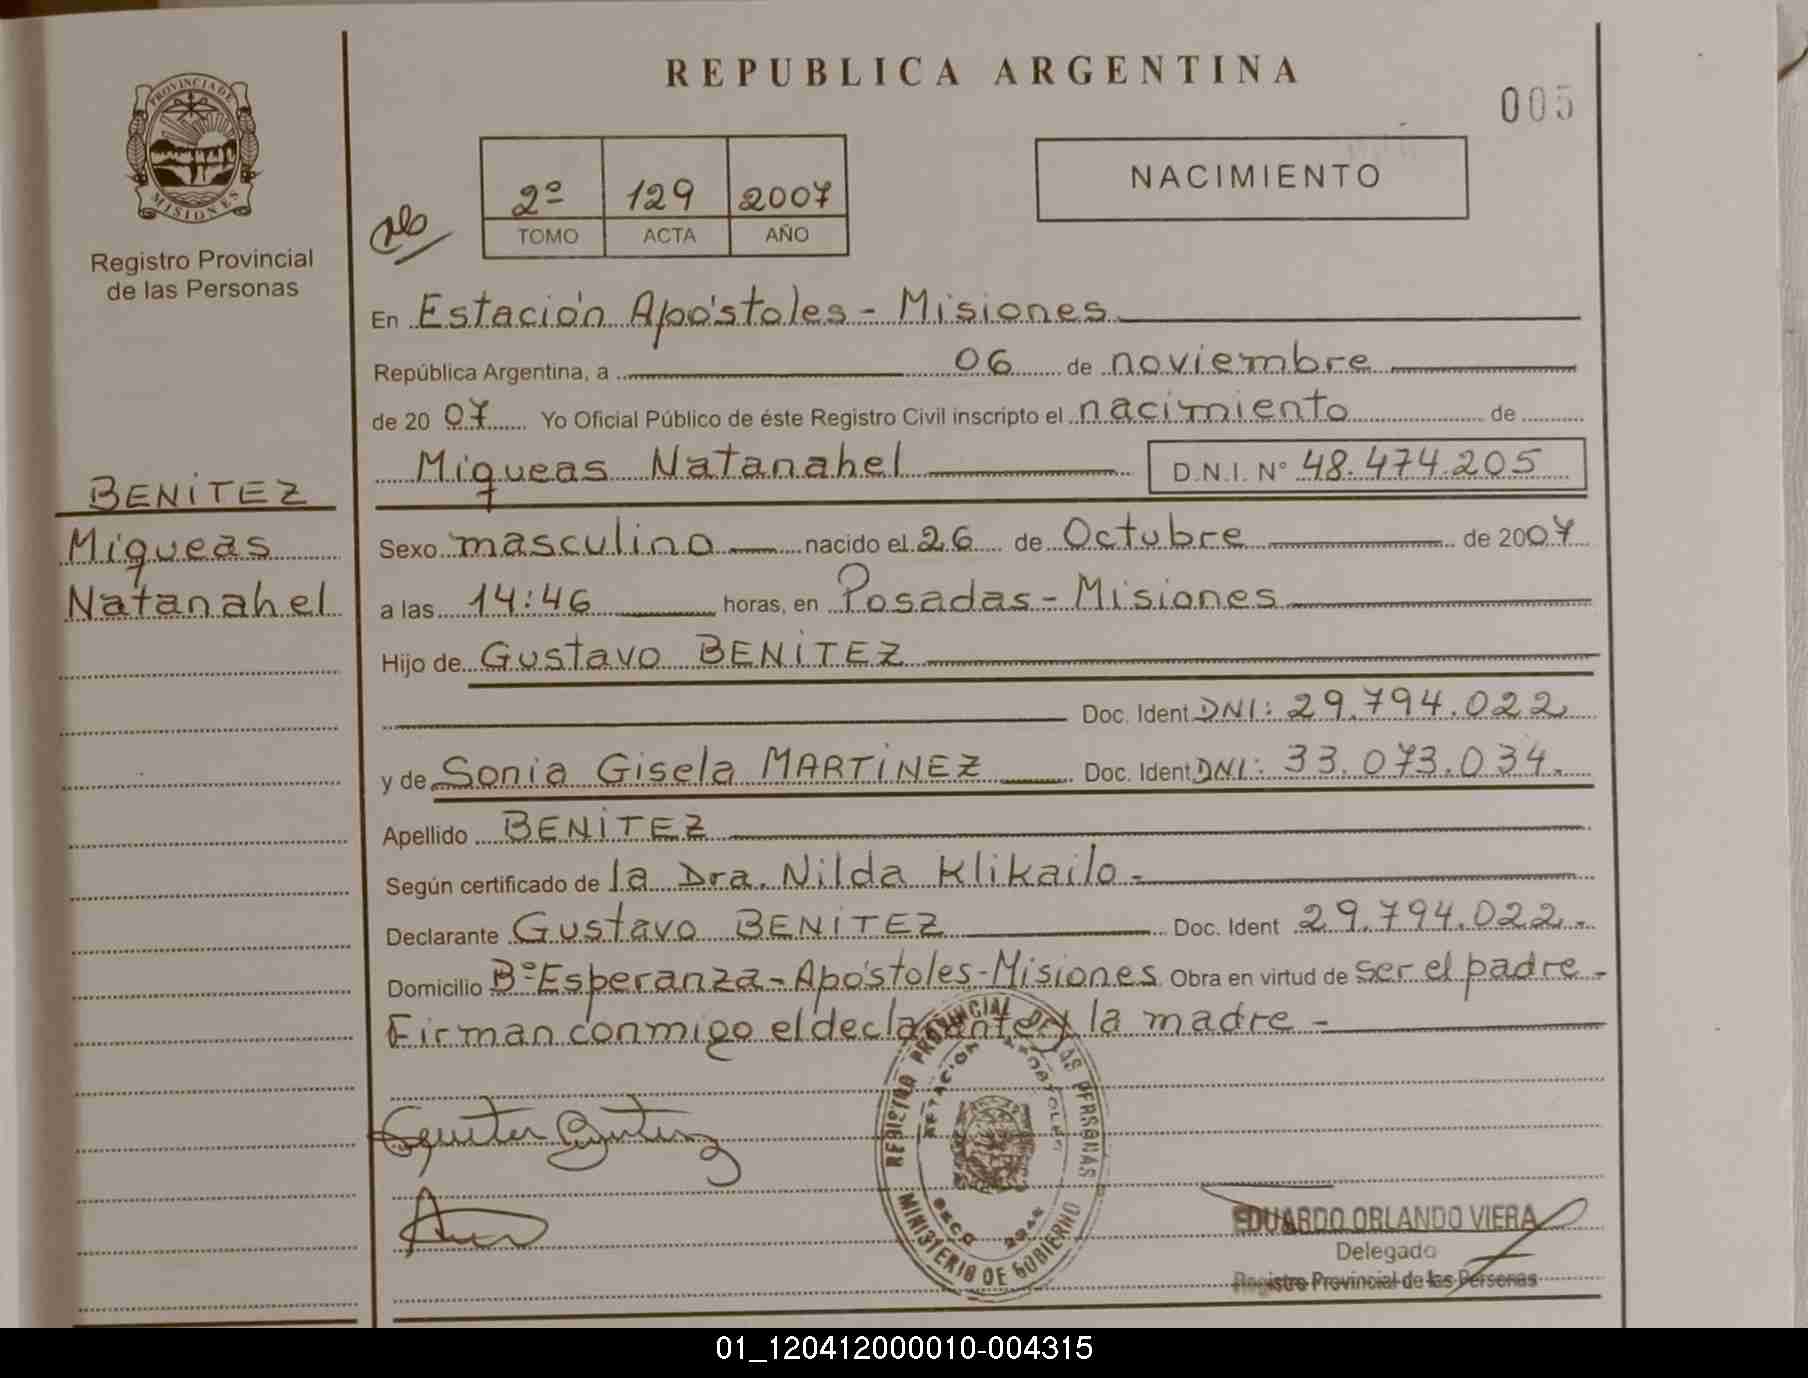 REPUBLICA ARGENTINA
005
PROVINCIA DE
MISIONES
Registro Provincial
de las Personas
2º 129 2007
TOMO ACTA AÑO
NACIMIENTO
En Estación Apóstoles - Misiones
República Argentina, a 06 de noviembre
de 2007 Yo Oficial Público de éste Registro Civil inscripto el nacimiento de
Miqueas Natanahel D.N.I. Nº 48.474.205
BENÍTEZ
Miqueas
Natanahel
Sexo masculino nacido el 26 de Octubre de 2007
a las 14:46 horas, en Posadas - Misiones
Hijo de Gustavo BENÍTEZ
Doc. Ident DNI: 29.794.022
y de Sonia Gisela MARTÍNEZ Doc. Ident DNI: 33.073.034.
Apellido BENÍTEZ
Según certificado de la Dra. Nilda Klikailo -
Declarante Gustavo BENÍTEZ Doc. Ident 29.794.022.-
Domicilio Bº Esperanza - Apóstoles - Misiones Obra en virtud de ser el padre -
Firman conmigo el declarante y la madre -
REGISTRO PROVINCIAL DE LAS PERSONAS
ESTACION APOSTOLES
MINISTERIO DE GOBIERNO
EDUARDO ORLANDO VIERA
Delegado
Registro Provincial de las Personas
01_120412000010-004315